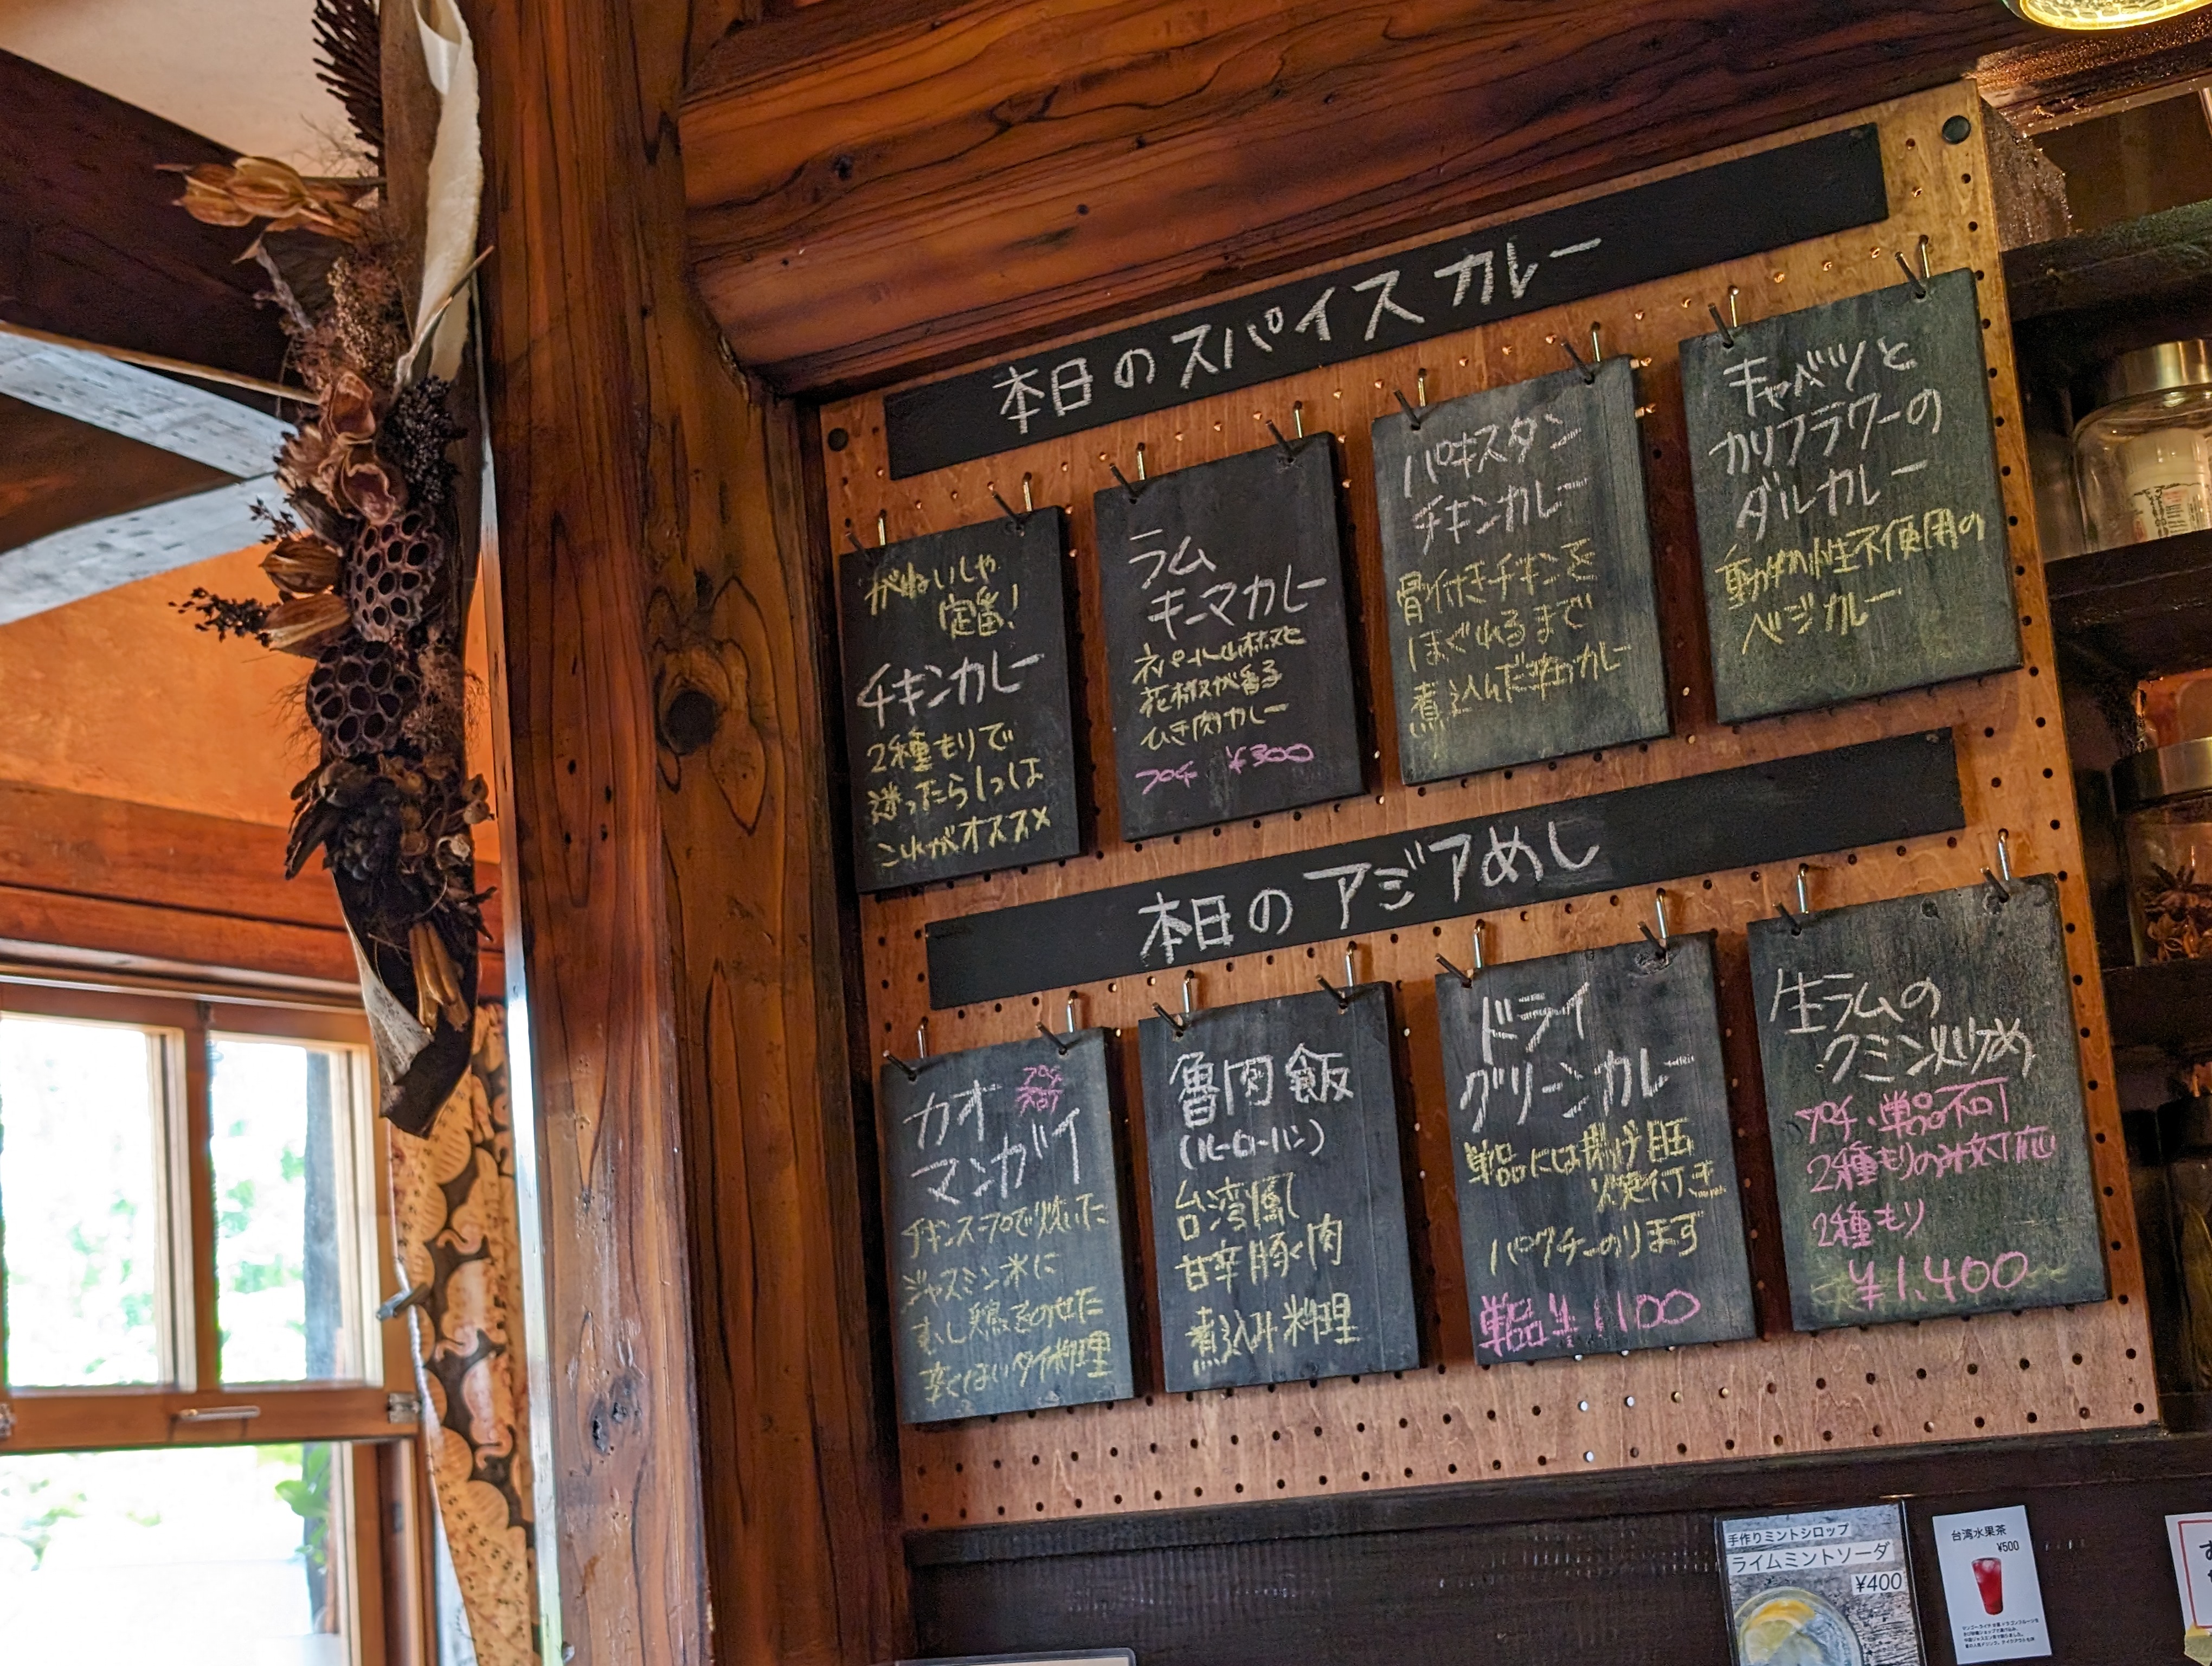 本日のスパイスカレー
がねいしゃ
定番!
チキンカレー
2種もりで
迷ったら1つは
これがオススメ
ラム
キーマカレー
ネパール山椒と
花椒が香る
ひき肉カレー
プチ ¥300
パキスタン
チキンカレー
骨付きチキンを
ほぐれるまで
煮込んだ カレー
キャベツと
カリフラワーの
ダルカレー
動物性不使用の
ベジカレー
本日のアジアめし
カオ
マンガイ
チキンスープで炊いた
ジャスミン米に
むし鶏をのせた
辛くないタイ料理
魯肉飯
(ルーローハン)
台湾風
甘辛豚肉
煮込み料理
ドライ
グリーンカレー
単品には揚げ目玉
焼付き
パクチーのります
単品¥1100
生ラムの
クミン炒め
プチ・単品不可
2種もりのみ対応
2種もり
¥1,400
手作りミントシロップ
ライムミントソーダ
¥400
台湾水果茶
¥500